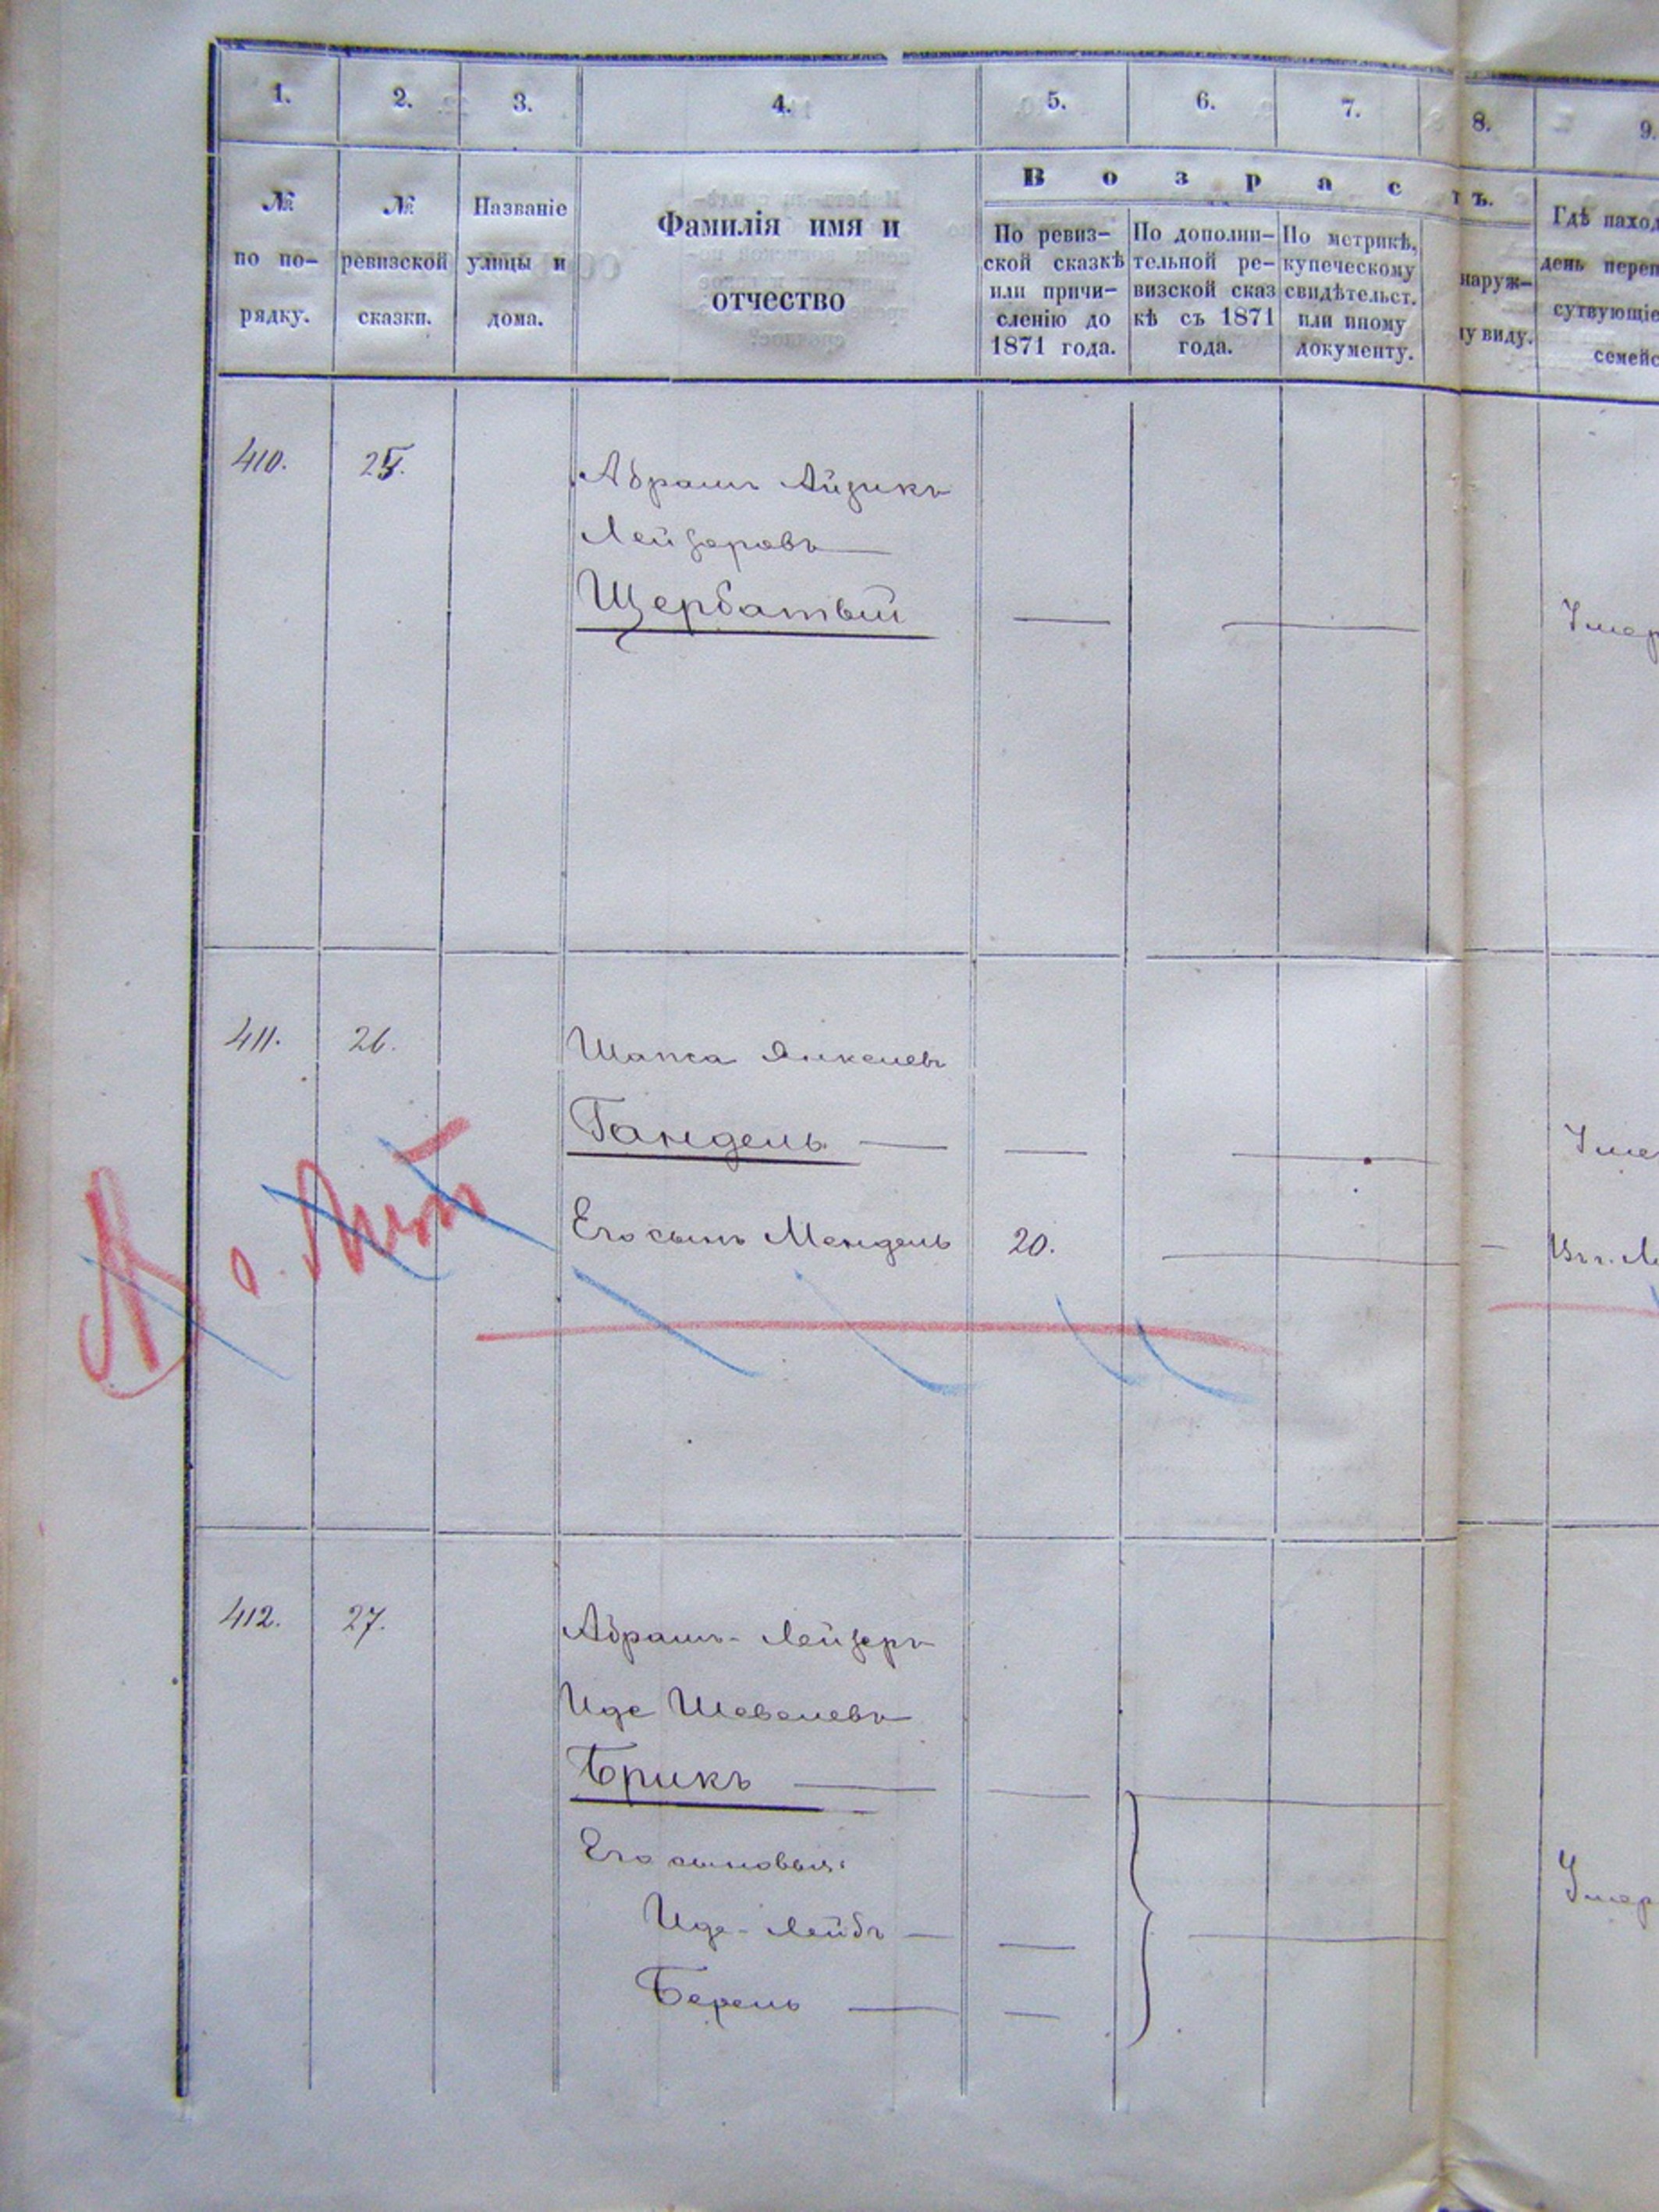 1. 2. 3. 4. 5. 6. 7. 8. 9.
№ по по- рядку.
№ ревизской сказки.
Названіе улицы и дома.
Фамилія имя и
отчество
В о з р а с т ъ.
По ревиз-
ской сказкѣ
или причи-
сленію до
1871 года.
По дополни-
тельной ре-
визской сказ
кѣ съ 1871
года.
По метрикѣ,
купеческому
свидѣтельст.
или иному
документу.
наруж-
у виду.
Гдѣ наход
день переп
сутвующіе
семейс
410. 25. Абрамъ Айзикъ
Лейзеровъ —
Щербатый — —
Умер
411. 26. Шапса Янкелевъ
Гандель — — —
Уме
Его сынъ Мендель 20. — —
412. 27. Абрамъ-Лейзеръ
Иде Шевелевъ
Брикъ — — —
Его сыновья:
Иде-Лейбъ — — —
Умер
Берель — —